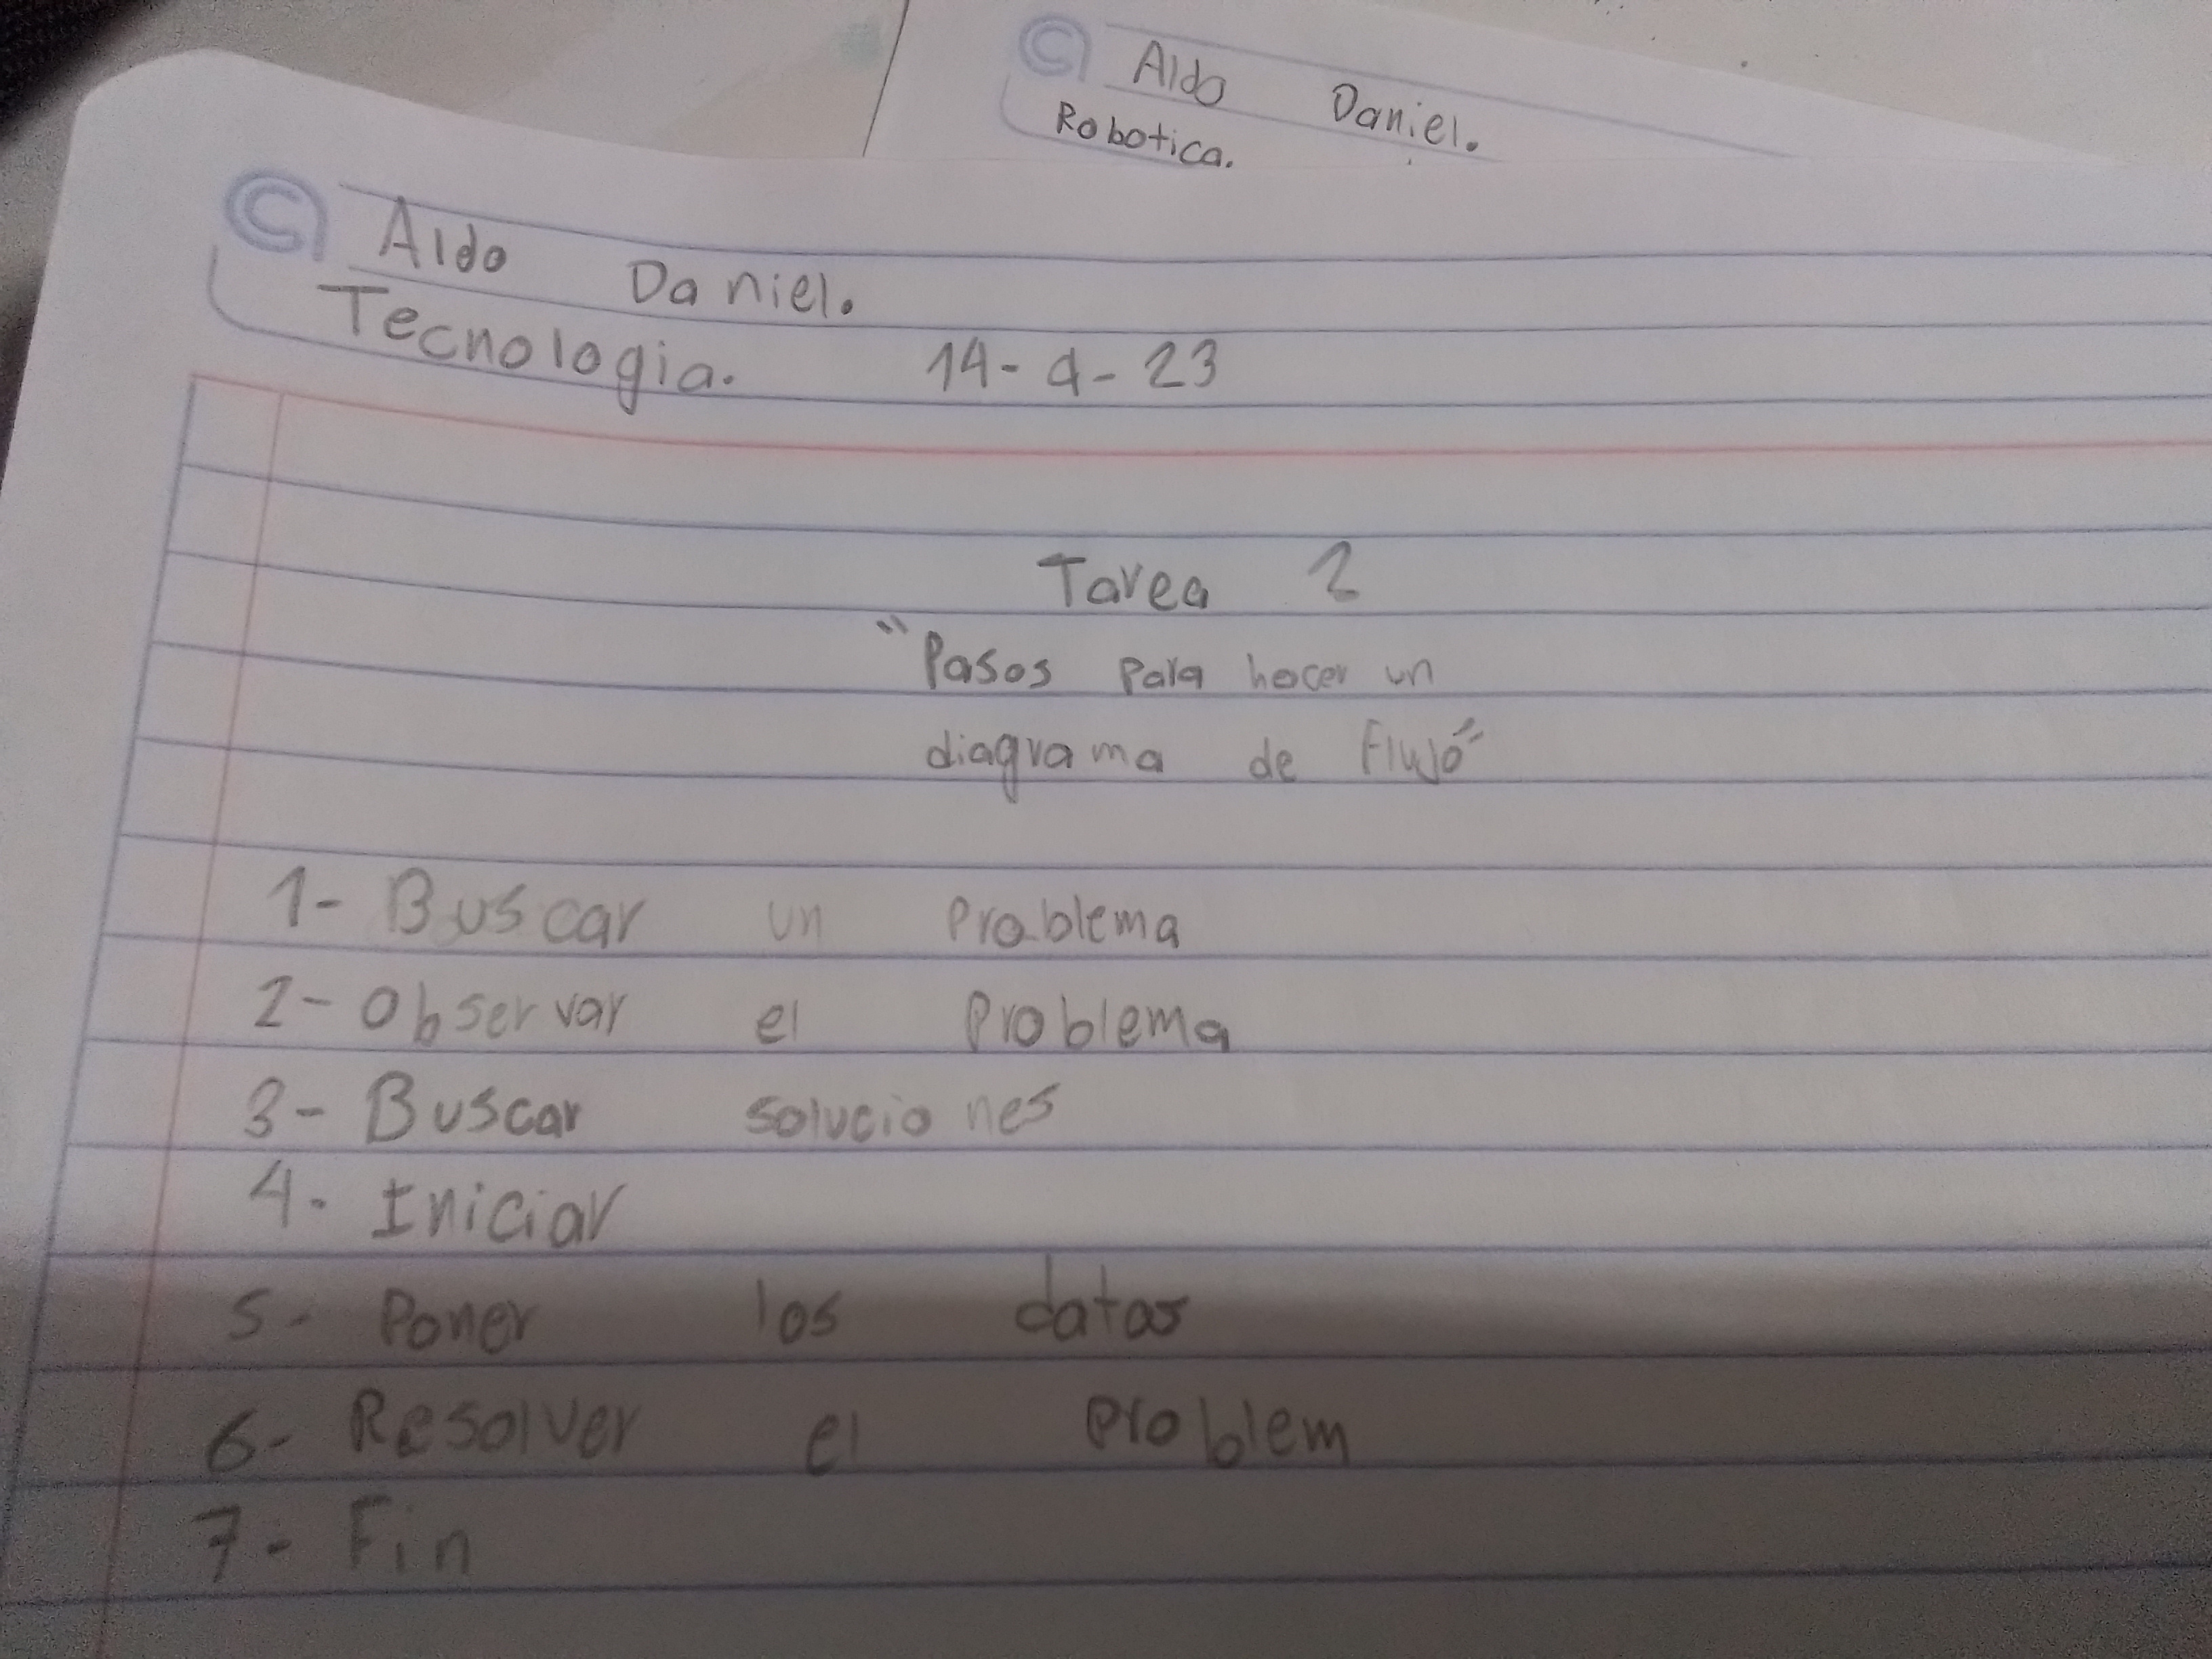 Aldo Daniel.
Robotica.
Aldo Daniel.
Tecnologia. 14-4-23
Tarea 2
"Pasos para hacer un
diagrama de Flujo"
1- Buscar un Problema
2- Observar el Problema
3- Buscar soluciones
4- Iniciar
5- Poner los datos
6- Resolver el Problem
7- Fin